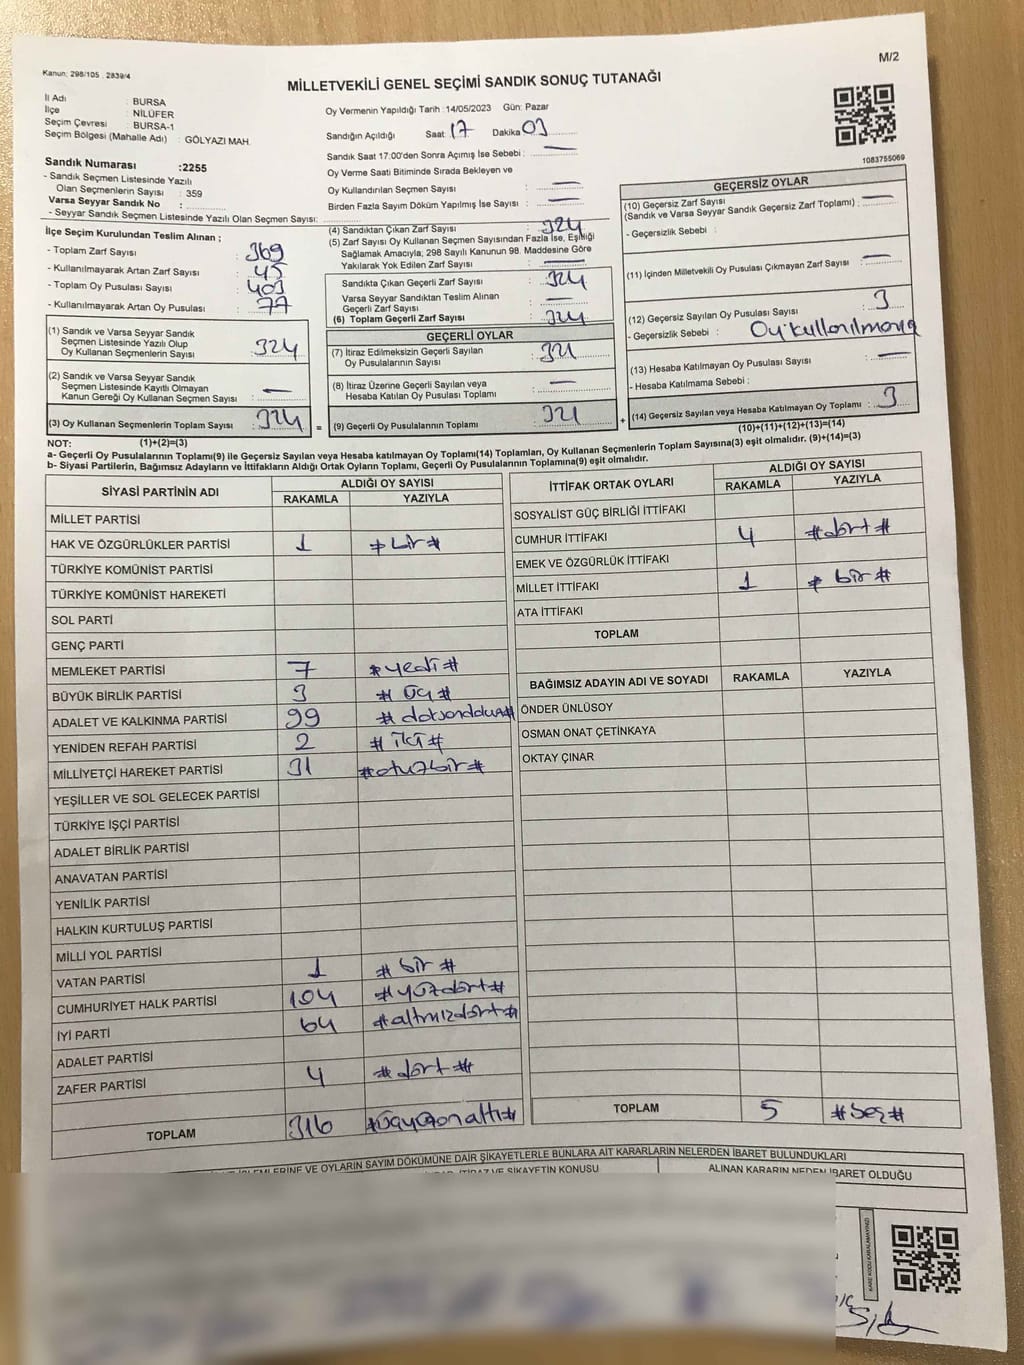 Kanun: 298/105 , 2839/4
M/2
MİLLETVEKİLİ GENEL SEÇİMİ SANDIK SONUÇ TUTANAĞI
İl Adı : BURSA
İlçe : NİLÜFER
Seçim Çevresi : BURSA-1
Seçim Bölgesi (Mahalle Adı) : GÖLYAZI MAH.
Sandık Numarası :2255
- Sandık Seçmen Listesinde Yazılı
Olan Seçmenlerin Sayısı : 359
Varsa Seyyar Sandık No :
- Seyyar Sandık Seçmen Listesinde Yazılı Olan Seçmen Sayısı:
Oy Vermenin Yapıldığı Tarih :14/05/2023 Gün: Pazar
Sandığın Açıldığı Saat: 17 Dakika: 03
Sandık Saat 17:00'den Sonra Açımış İse Sebebi : —
Oy Verme Saati Bitiminde Sırada Bekleyen ve
Oy Kullandırılan Seçmen Sayısı : —
Birden Fazla Sayım Döküm Yapılmış İse Sayısı : —
1083755069
İlçe Seçim Kurulundan Teslim Alınan ;
- Toplam Zarf Sayısı : 369
- Kullanılmayarak Artan Zarf Sayısı : 45
- Toplam Oy Pusulası Sayısı : 403
- Kullanılmayarak Artan Oy Pusulası : 77
(1) Sandık ve Varsa Seyyar Sandık
Seçmen Listesinde Yazılı Olup
Oy Kullanan Seçmenlerin Sayısı : 324
(2) Sandık ve Varsa Seyyar Sandık
Seçmen Listesinde Kayıtlı Olmayan
Kanun Gereği Oy Kullanan Seçmen Sayısı : —
(3) Oy Kullanan Seçmenlerin Toplam Sayısı : 324
(1)+(2)=(3)
(4) Sandıktan Çıkan Zarf Sayısı : 324
(5) Zarf Sayısı Oy Kullanan Seçmen Sayısından Fazla İse, Eşitliği
Sağlamak Amacıyla; 298 Sayılı Kanunun 98. Maddesine Göre
Yakılarak Yok Edilen Zarf Sayısı : —
Sandıkta Çıkan Geçerli Zarf Sayısı : 324
Varsa Seyyar Sandıktan Teslim Alınan
Geçerli Zarf Sayısı : —
(6) Toplam Geçerli Zarf Sayısı : 324
GEÇERLİ OYLAR
(7) İtiraz Edilmeksizin Geçerli Sayılan
Oy Pusulalarının Sayısı : 321
(8) İtiraz Üzerine Geçerli Sayılan veya
Hesaba Katılan Oy Pusulası Toplamı : —
= (9) Geçerli Oy Pusulalarının Toplamı : 321 +
GEÇERSİZ OYLAR
(10) Geçersiz Zarf Sayısı : —
(Sandık ve Varsa Seyyar Sandık Geçersiz Zarf Toplamı)
- Geçersizlik Sebebi :
(11) İçinden Milletvekili Oy Pusulası Çıkmayan Zarf Sayısı : —
(12) Geçersiz Sayılan Oy Pusulası Sayısı : 3
- Geçersizlik Sebebi : Oy kullanılmama
(13) Hesaba Katılmayan Oy Pusulası Sayısı : —
- Hesaba Katılmama Sebebi :
(14) Geçersiz Sayılan veya Hesaba Katılmayan Oy Toplamı : 3
(10)+(11)+(12)+(13)=(14)
NOT:
a- Geçerli Oy Pusulalarının Toplamı(9) ile Geçersiz Sayılan veya Hesaba katılmayan Oy Toplamı(14) Toplamları, Oy Kullanan Seçmenlerin Toplam Sayısına(3) eşit olmalıdır. (9)+(14)=(3)
b- Siyasi Partilerin, Bağımsız Adayların ve İttifakların Aldığı Ortak Oyların Toplamı, Geçerli Oy Pusulalarının Toplamına(9) eşit olmalıdır.
SİYASİ PARTİNİN ADI ALDIĞI OY SAYISI
RAKAMLA YAZIYLA
MİLLET PARTİSİ
HAK VE ÖZGÜRLÜKLER PARTİSİ 1 #bir#
TÜRKİYE KOMÜNİST PARTİSİ
TÜRKİYE KOMÜNİST HAREKETİ
SOL PARTİ
GENÇ PARTİ
MEMLEKET PARTİSİ 7 #yedi#
BÜYÜK BİRLİK PARTİSİ 3 #üç#
ADALET VE KALKINMA PARTİSİ 99 #doksandokuz#
YENİDEN REFAH PARTİSİ 2 #iki#
MİLLİYETÇİ HAREKET PARTİSİ 31 #otuzbir#
YEŞİLLER VE SOL GELECEK PARTİSİ
TÜRKİYE İŞÇİ PARTİSİ
ADALET BİRLİK PARTİSİ
ANAVATAN PARTİSİ
YENİLİK PARTİSİ
HALKIN KURTULUŞ PARTİSİ
MİLLİ YOL PARTİSİ
VATAN PARTİSİ 1 #bir#
CUMHURİYET HALK PARTİSİ 104 #yüzdört#
İYİ PARTİ 64 #altmışdört#
ADALET PARTİSİ
ZAFER PARTİSİ 4 #dört#
TOPLAM 316 #üçyüzonaltı#
İTTİFAK ORTAK OYLARI ALDIĞI OY SAYISI
RAKAMLA YAZIYLA
SOSYALİST GÜÇ BİRLİĞİ İTTİFAKI
CUMHUR İTTİFAKI 4 #dört#
EMEK VE ÖZGÜRLÜK İTTİFAKI
MİLLET İTTİFAKI 1 #bir#
ATA İTTİFAKI
TOPLAM
BAĞIMSIZ ADAYIN ADI VE SOYADI RAKAMLA YAZIYLA
ÖNDER ÜNLÜSOY
OSMAN ONAT ÇETİNKAYA
OKTAY ÇINAR
TOPLAM 5 #beş#
İŞLEMLERİNE VE OYLARIN SAYIM DÖKÜMÜNE DAİR ŞİKAYETLERLE BUNLARA AİT KARARLARIN NELERDEN İBARET BULUNDUKLARI
İTİRAZ VE ŞİKAYETİN KONUSU ALINAN KARARIN NEDEN İBARET OLDUĞU